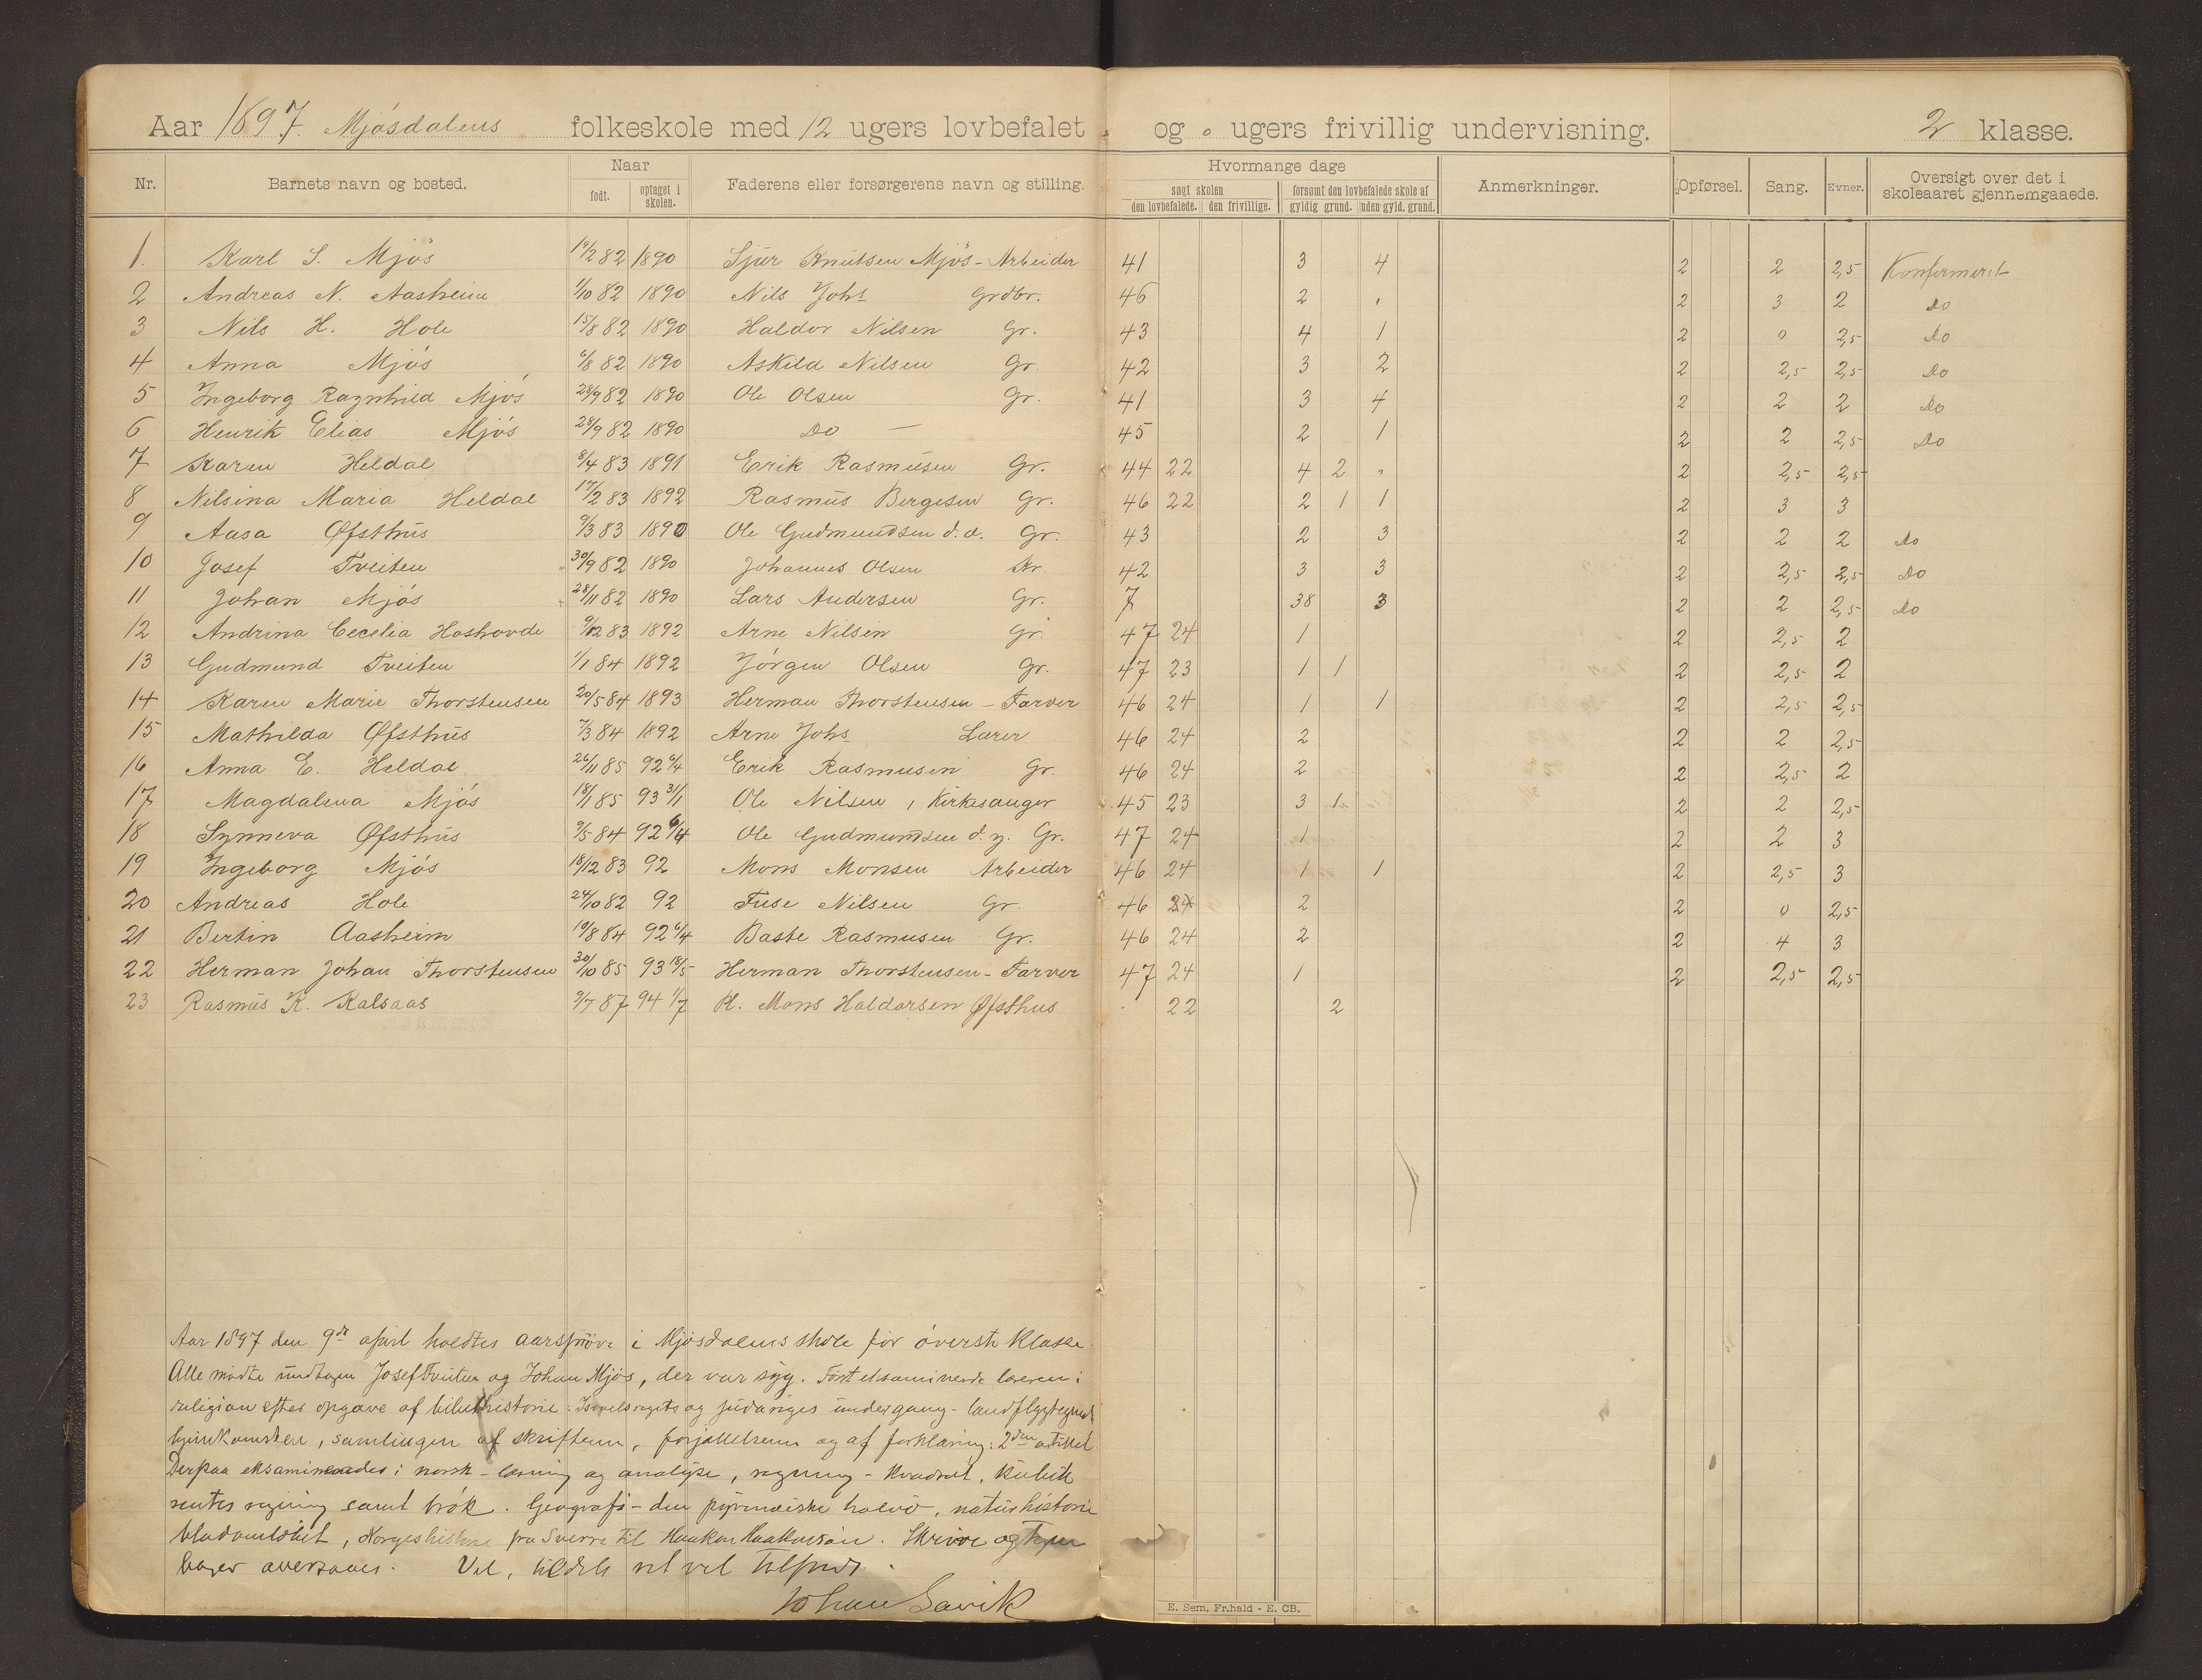 Aar 1897. Mjösdalens folkeskole med 12 ugers lovbefalet og 0 ugers frivillig undervisning. 2 klasse.
Nr. Barnets navn og bosted. Naar født. optaget i skolen. Faderens eller forsørgerens navn og stilling. Hvormange dage søgt skolen den lovbefalede. den frivillige. forsømt den lovbefalede skole af gyldig grund. uden gyld. grund. Anmerkninger. Opførsel. Sang. Evner. Oversigt over det i skoleaaret gjennemgaaede.
1. Karl S. Mjös 19/2 82 1890 Sjur Knutsen Mjös - Arbeider 41 3 4 2 2 2,5 Konfirmeret
2 Andreas N. Aasheim 1/10 82 1890 Nils Johs Grdbr. 46 2 . 2 3 2 Do
3 Nils H. Hole 15/8 82 1890 Haldor Nilsen Gr. 43 4 1 2 0 2,5 Do
4 Anna Mjös 6/8 82 1890 Askild Nilsen Gr. 42 3 2 2 2,5 2,5 Do
5 Ingeborg Ragnhild Mjös 28/9 82 1890 Ole Olsen Gr. 41 3 4 2 2 2 Do
6 Henrik Elias Mjös 28/9 82 1890 Do — 45 2 1 2 2 2,5 Do
7 Karen Heldal 8/4 83 1891 Erik Rasmusen Gr. 44 22 4 2 " 2 2,5 2,5
8 Nilsina Maria Heldal 17/2 83 1892 Rasmus Bergesen Gr. 46 22 2 1 1 2 3 3
9 Aasa Øfsthus 9/3 83 1890 Ole Gudmundsen d. æ. Gr. 43 2 3 2 2 2 Do
10 Josef Tveiten 30/9 82 1890 Johannes Olsen Gr. 42 3 3 2 2,5 2,5 Do
11 Johan Mjös 28/11 82 1890 Lars Andersen Gr. 7 38 3 2 2 2,5 Do
12 Andrina Cecelia Hashovde 9/12 83 1892 Arne Nilsen Gr. 47 24 1 2 2,5 2
13 Gudmund Tveiten 1/1 84 1892 Jörgen Olsen Gr. 47 23 1 1 2 2,5 2
14 Karen Marie Thorstensen 20/5 84 1893 Herman Thorstensen - Farver 46 24 1 1 2 2,5 2,5
15 Mathilda Øfsthus 7/3 84 1892 Arne Johs Lærer 46 24 2 2 2 2,5
16 Anna E. Heldal 26/11 85 92 6/4 Erik Rasmusen Gr. 46 24 2 2 2,5 2
17 Magdalena Mjös 18/1 85 93 31/1 Ole Nilsen, Kirkesanger 45 23 3 1 2 2 2,5
18 Synneva Øfsthus 9/5 84 92 6/4 Ole Gudmundsen d. y. Gr. 47 24 1 2 2 3
19 Ingeborg Mjös 18/12 83 92 Mons Monsen Arbeider 46 24 1 1 2 2,5 3
20 Andreas Hole 24/10 82 92 Fuse Nilsen Gr. 46 24 2 2 0 2,5
21 Bertin Aasheim 19/8 84 92 6/4 Baste Rasmusen Gr. 46 24 2 2 4 3
22 Herman Johan Thorstensen 30/10 85 93 18/5 Herman Thorstensen - Farver 47 24 1 2 2,5 2,5
23 Rasmus K. Kalsaas 9/7 87 94 1/7 Pl. Mons Haldorsen Øfsthus . 22 2
Aar 1897 den 9de april holdtes aarspröve i Mjösdalens skole for överste klasse.
Alle mödte undtagen Josef Tveiten og Johan Mjös, der var syg. Först eksaminerede læreren i
religion efter opgave af bibelhistorie: Israelsrigets og judariges undergang -
hjemkomsten, samlingen af skriften, forjættelserne og af forklaring: 2den artikel
Derpaa eksamineredes i norsk - læsning og analyse, regning - kvadrat, kubik
rentes regning samt brök. Geografi - den pyrenæiske halvö, naturhistorie
blodomlöbet, Norgeshistorie fra Sverre til Haakon Haakonsön. Skrive og
böger oversaaes. Vel, tildels ret vel tilfreds.
Johan Savik
E. Sem, Fr.hald - E. CB.